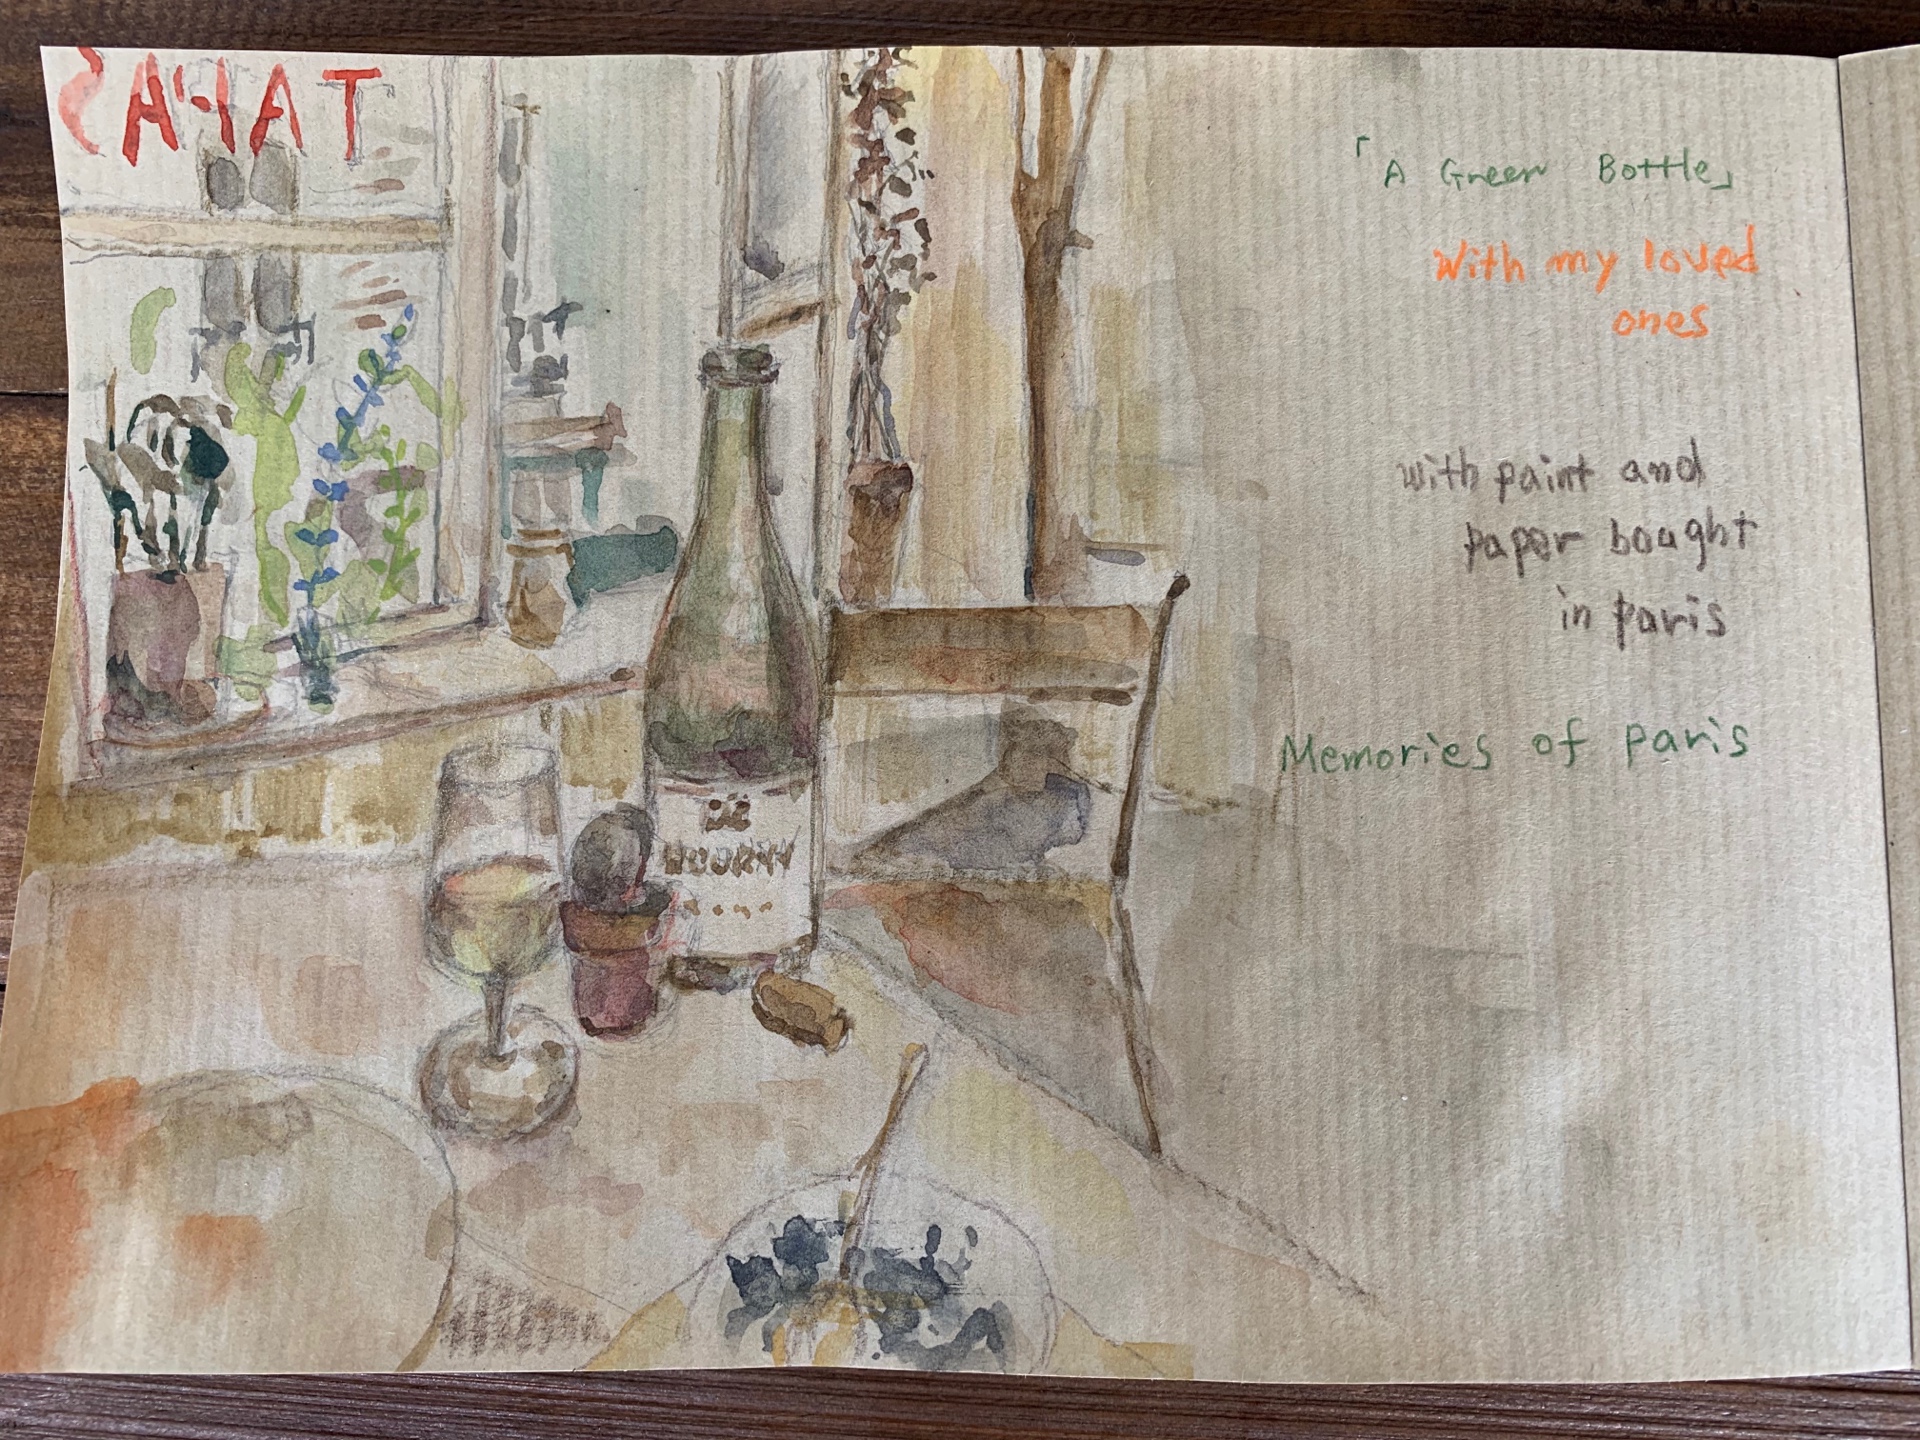 TAPAS
「A Green Bottle」
With my loved
ones
with paint and
paper bought
in paris
Memories of paris
DE